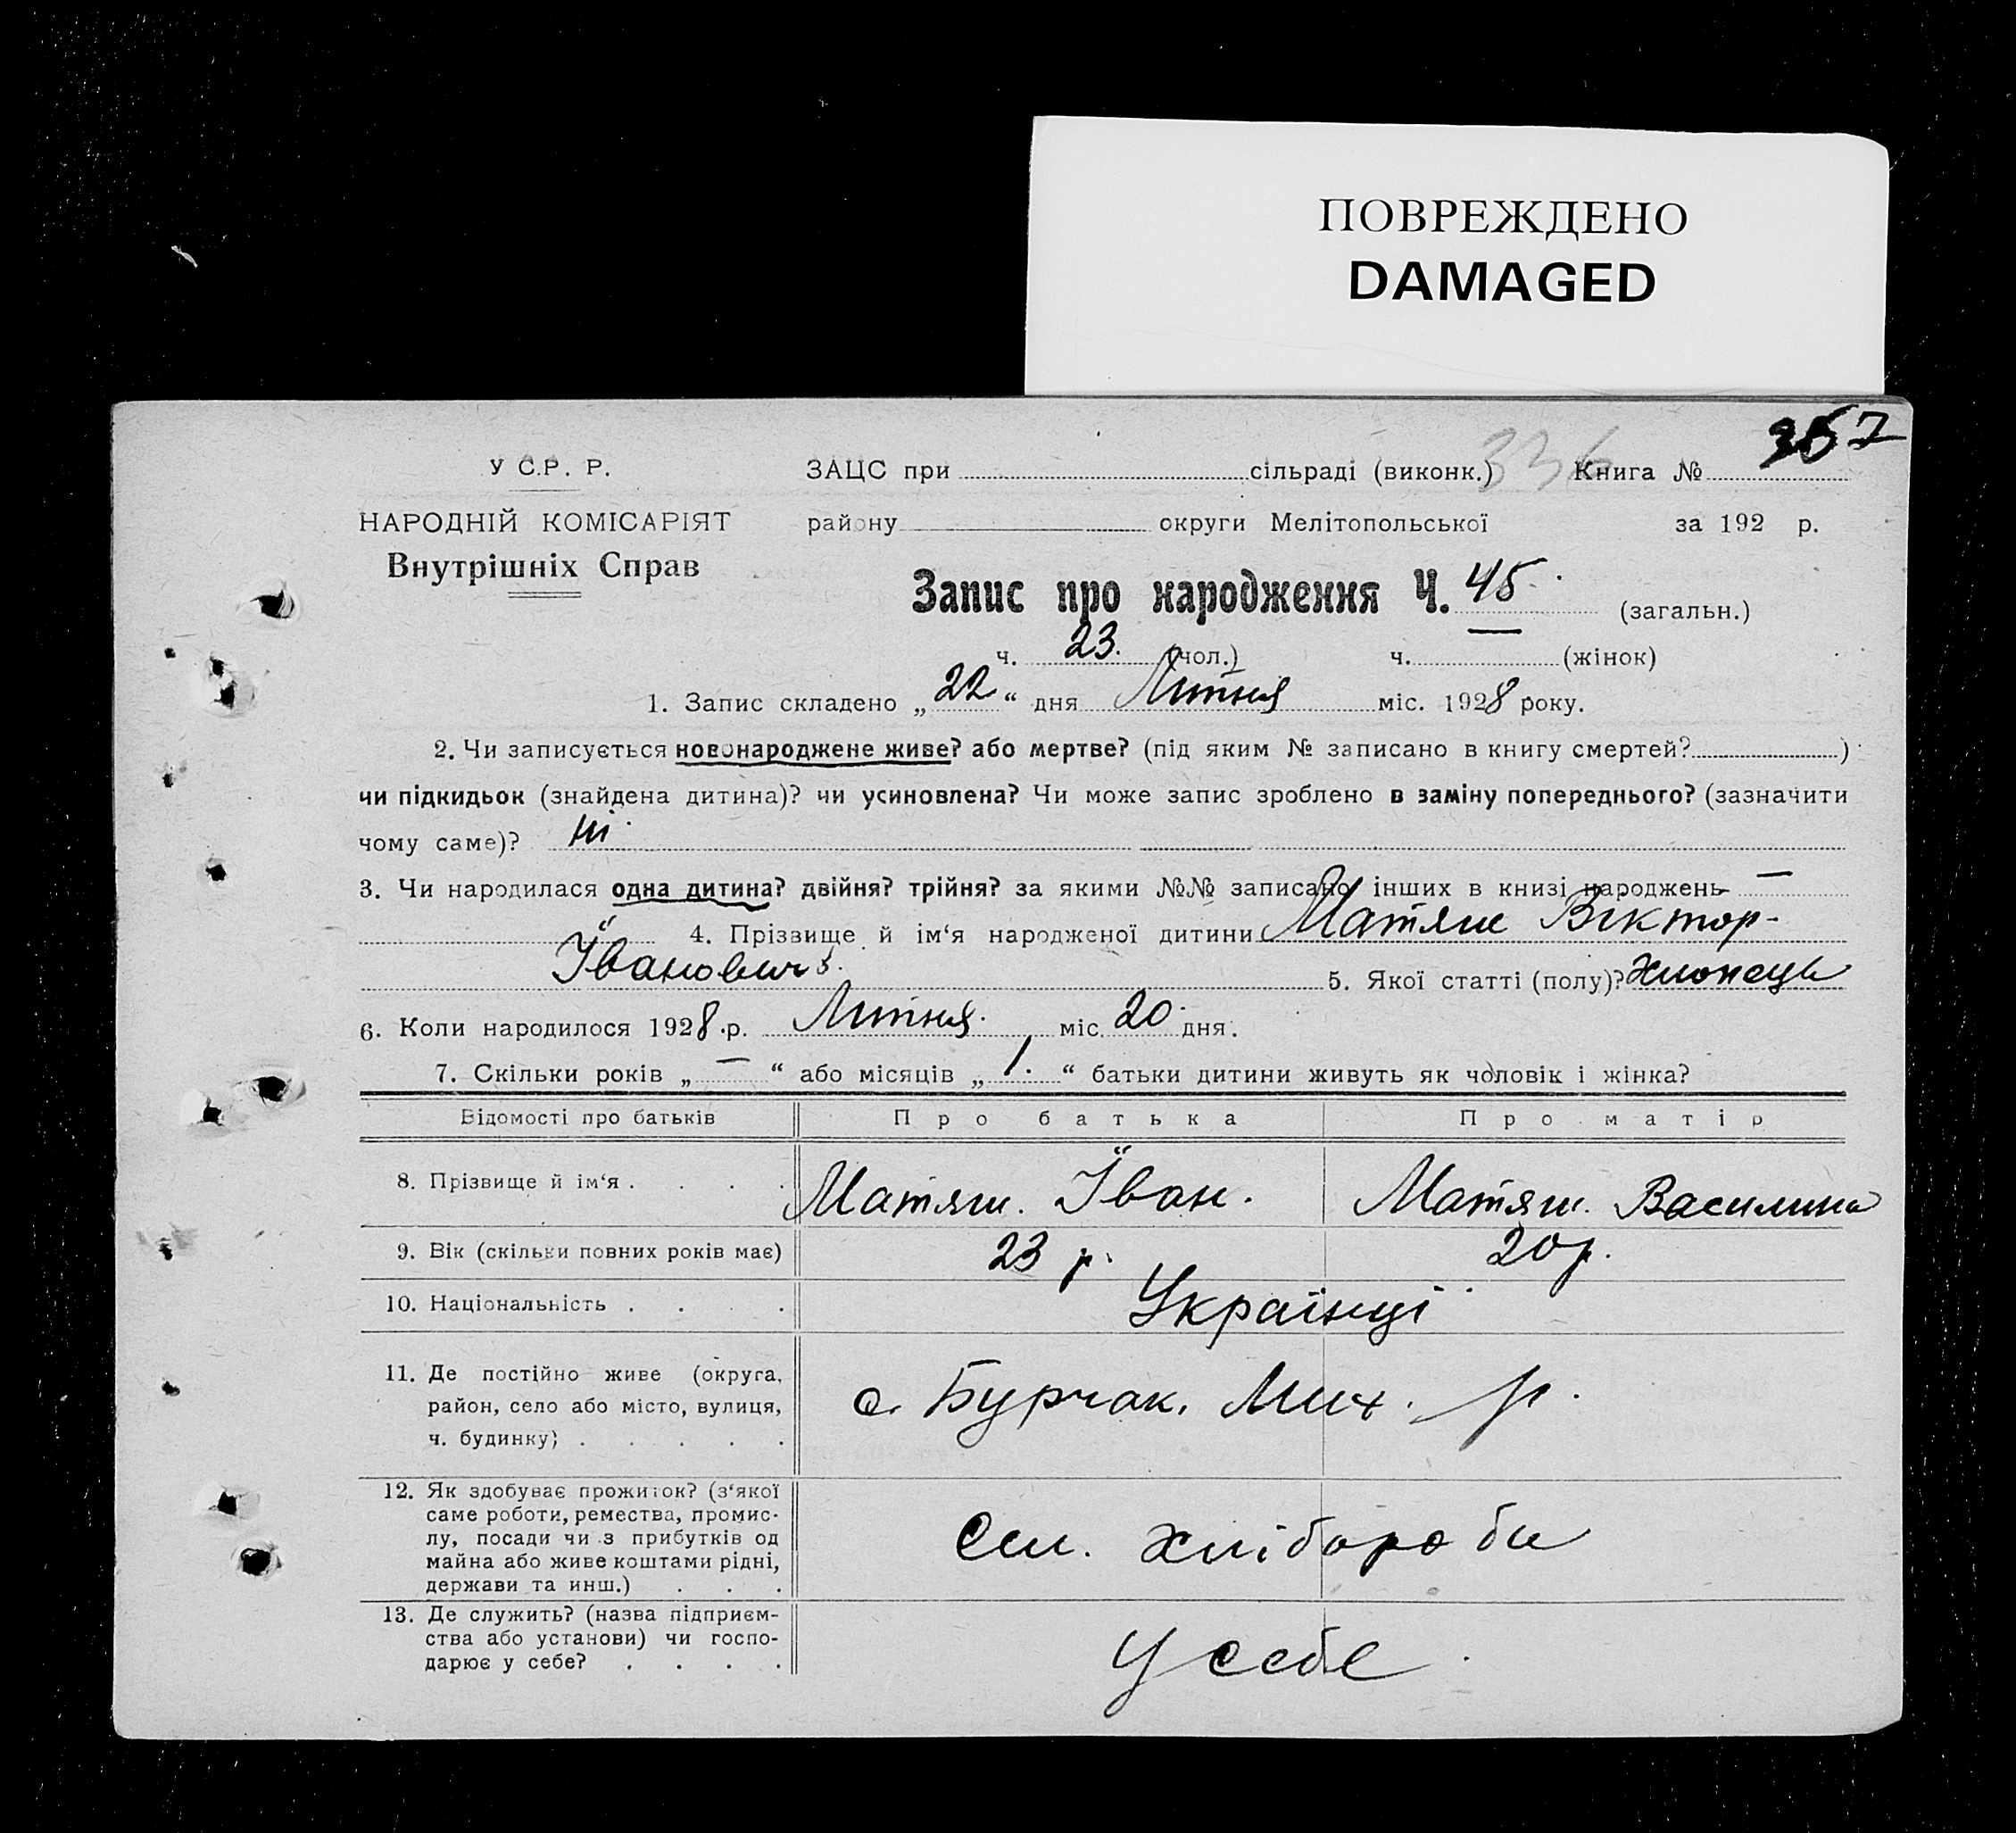 ПОВРЕЖДЕНО
DAMAGED
357
336
У С.Р. Р. ЗАЦС при сільраді (виконк.) Книга №
НАРОДНІЙ КОМІСАРІЯТ району округи Мелітопольської за 192 р.
Внутрішніх Справ
Запис про народження Ч. 45. (загальн.)
ч. 23. (чол.) ч. (жінок)
1. Запис складено „22“ дня Литня міс. 1928 року.
2. Чи записується новонароджене живе? або мертве? (під яким № записано в книгу смертей? )
чи підкидьок (знайдена дитина)? чи усиновлена? Чи може запис зроблено в заміну попереднього? (зазначити
чому саме)? ні.
3. Чи народилася одна дитина? двійня? трійня? за якими №№ записано інших в книзі народжень —
4. Прізвище й ім‘я народженої дитини Матяш Віктор-
Іванович 5. Якої статті (полу)? хлопець
6. Коли народилося 1928 р. Литня. міс. 20 дня.
7. Скільки років „—“ або місяців „1.“ батьки дитини живуть як чоловік і жінка?
Відомості про батьків Про батька Про матір
8. Прізвище й ім‘я . . . . Матяш. Їван. Матяш. Василина
9. Вік (скільки повних років має) 23 р. 20 р.
10. Національність . . . . Українці
11. Де постійно живе (округа,
район, село або місто, вулиця,
ч. будинку) . . . . . с. Бурчак. Мих. р.
12. Як здобуває прожиток? (з‘якої
саме роботи, ремества, промис-
лу, посади чи з прибутків од
майна або живе коштами рідні,
держави та инш.) . . . Сел. хлібороби
13. Де служить? (назва підприєм-
ства або установи) чи госпо-
дарює у себе? . . . . У себе.